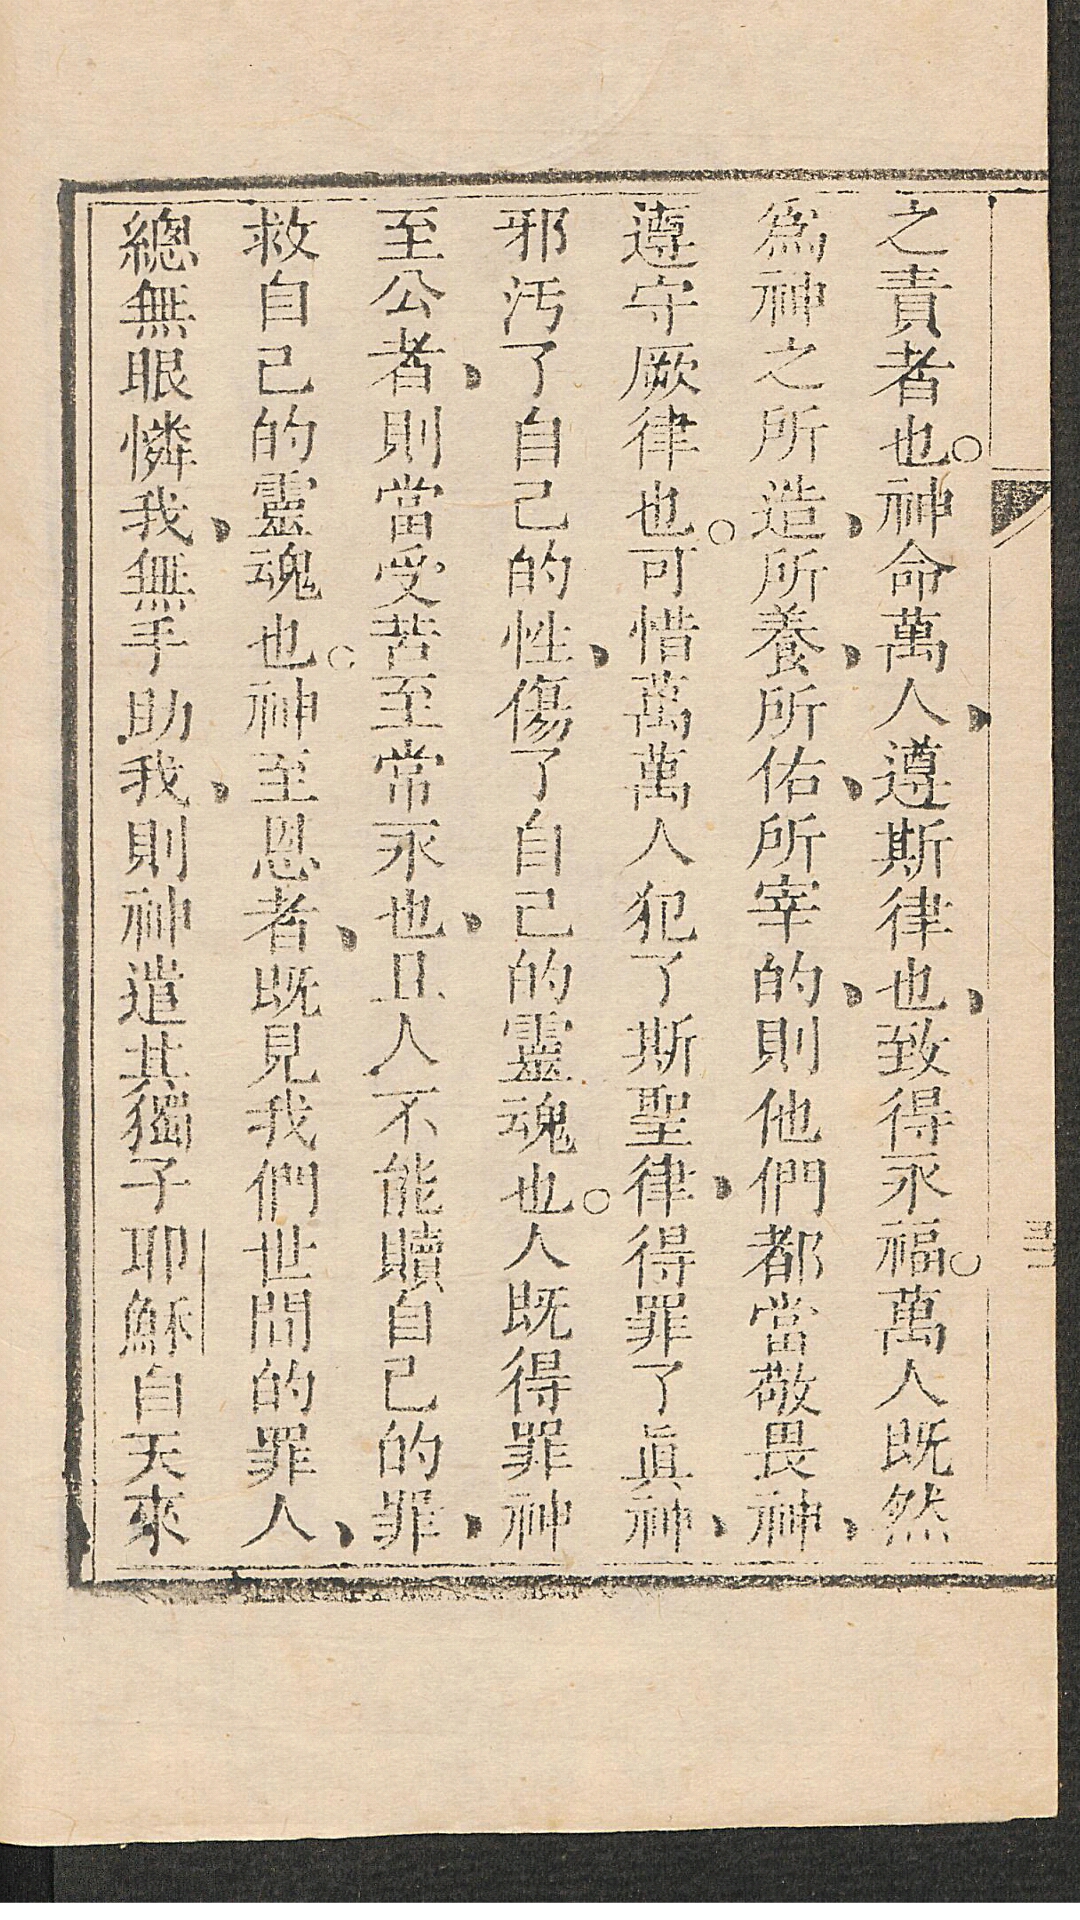 之責者也。神命萬人、遵斯律也、致得永福。萬人既然
爲神之所造、所養、所佑、所宰的、則他們都當敬畏神、
遵守厥律也。可惜萬萬人犯了斯聖律、得罪了眞神、
邪汚了自己的性、傷了自己的靈魂也。人既得罪神
至公者、則當受苦至常永也、且人不能贖自己的罪、
救自己的靈魂也。神至恩者、既見我們世間的罪人、
總無眼憐我、無手助我、則神遣其獨子耶穌自天來